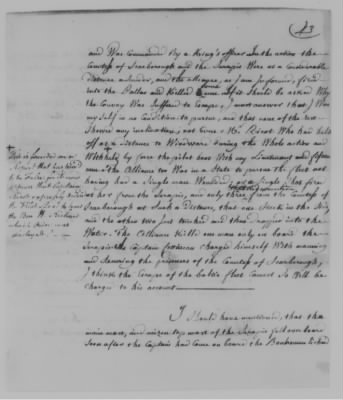 43
and was commanded by a King's officer. In the action the
Countess of Scarborough and the Serapis were at a considerable
distance asunder, and the Alliance, as I am informed, fired
into the Pallas and killed some. If it should be asked why
the Convoy was suffered to escape, I must answer that I was
myself in no condition to pursue, and that none of the rest
shewed any inclination, not even Mr. Ricot who had held
off at a distance to windward during the whole action and
withheld by force the pilot boat with my Lieutenant and fifteen
men. The Alliance too was in a state to pursue the fleet not
having had a single man wounded, or a single shot fired
at her from the Serapis, and only three from the Countess of
Scarborough at such a distance, that one stuck in the side
and the other two just touched and then dropped into the
water. The Alliance killed one man only on board the
Serapis. Captain Cottineau charged himself with manning
and securing the prisoners of the Countess of Scarborough,
I think the escape of the Baltic fleet cannot so well be
charged to his account
I should have mentioned, that the
main mast, and mizen top mast of the Serapis fell over board
soon after the Captain had come on board the Bonhomme Richard
This is founded on a
report that has
to be false
appears that Captain
Ricot
Pilot boat
Bon H. Richard
which order was